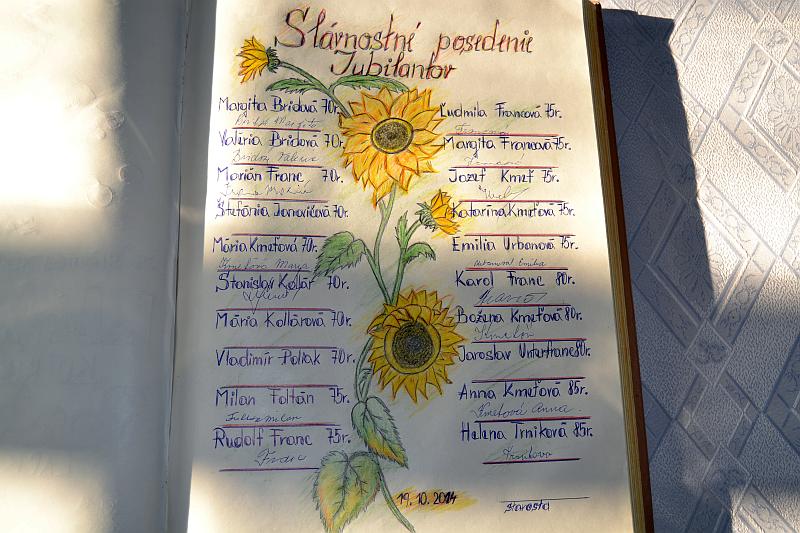 Slávnostné posedenie
Jubilantov
Margita Bridová 70r.
Valéria Bridová 70r.
Marián Franc 70r.
Štefánia Janovičová 70r.
Mária Kmeťová 70r.
Kmeťová Maria
Stanislav Kollár 70r.
Mária Kollárová 70r.
Vladimír Poliak 70r.
Milan Foltán 75r.
Rudolf Franc 75r.
Franc
Ľudmila Francová 75r.
Francová
Margita Francová 75r.
Francová
Jozef Kmeť 75r.
Katarína Kmeťová 75r.
Emília Urbanová 75r.
Karol Franc 80r.
Božena Kmeťová 80r.
Jaroslav Unterfranc 80r.
Anna Kmeťová 85r.
Kmeťová Anna
Helena Trniková 85r.
Trniková
19.10.2014
starosta